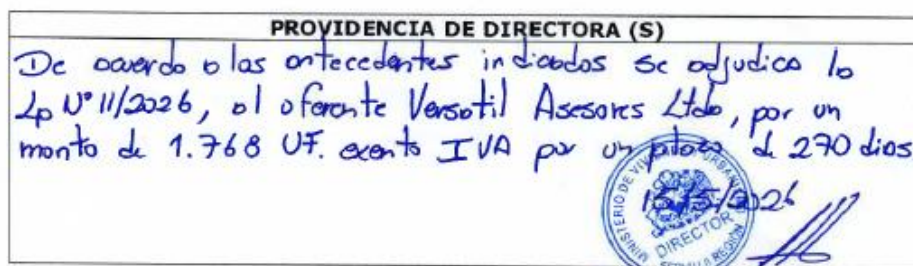 PROVIDENCIA DE DIRECTORA (S)
De acuerdo a las antecedentes indicados se adjudica la
Lp N° 11/2026, al oferente Versatil Asesores Ltda, por un
monto de 1.768 UF. exento IVA por un plazo de 270 dias
15/5/2026
MINISTERIO DE VIVIENDA Y URBANISMO
DIRECTOR
REGIÓN